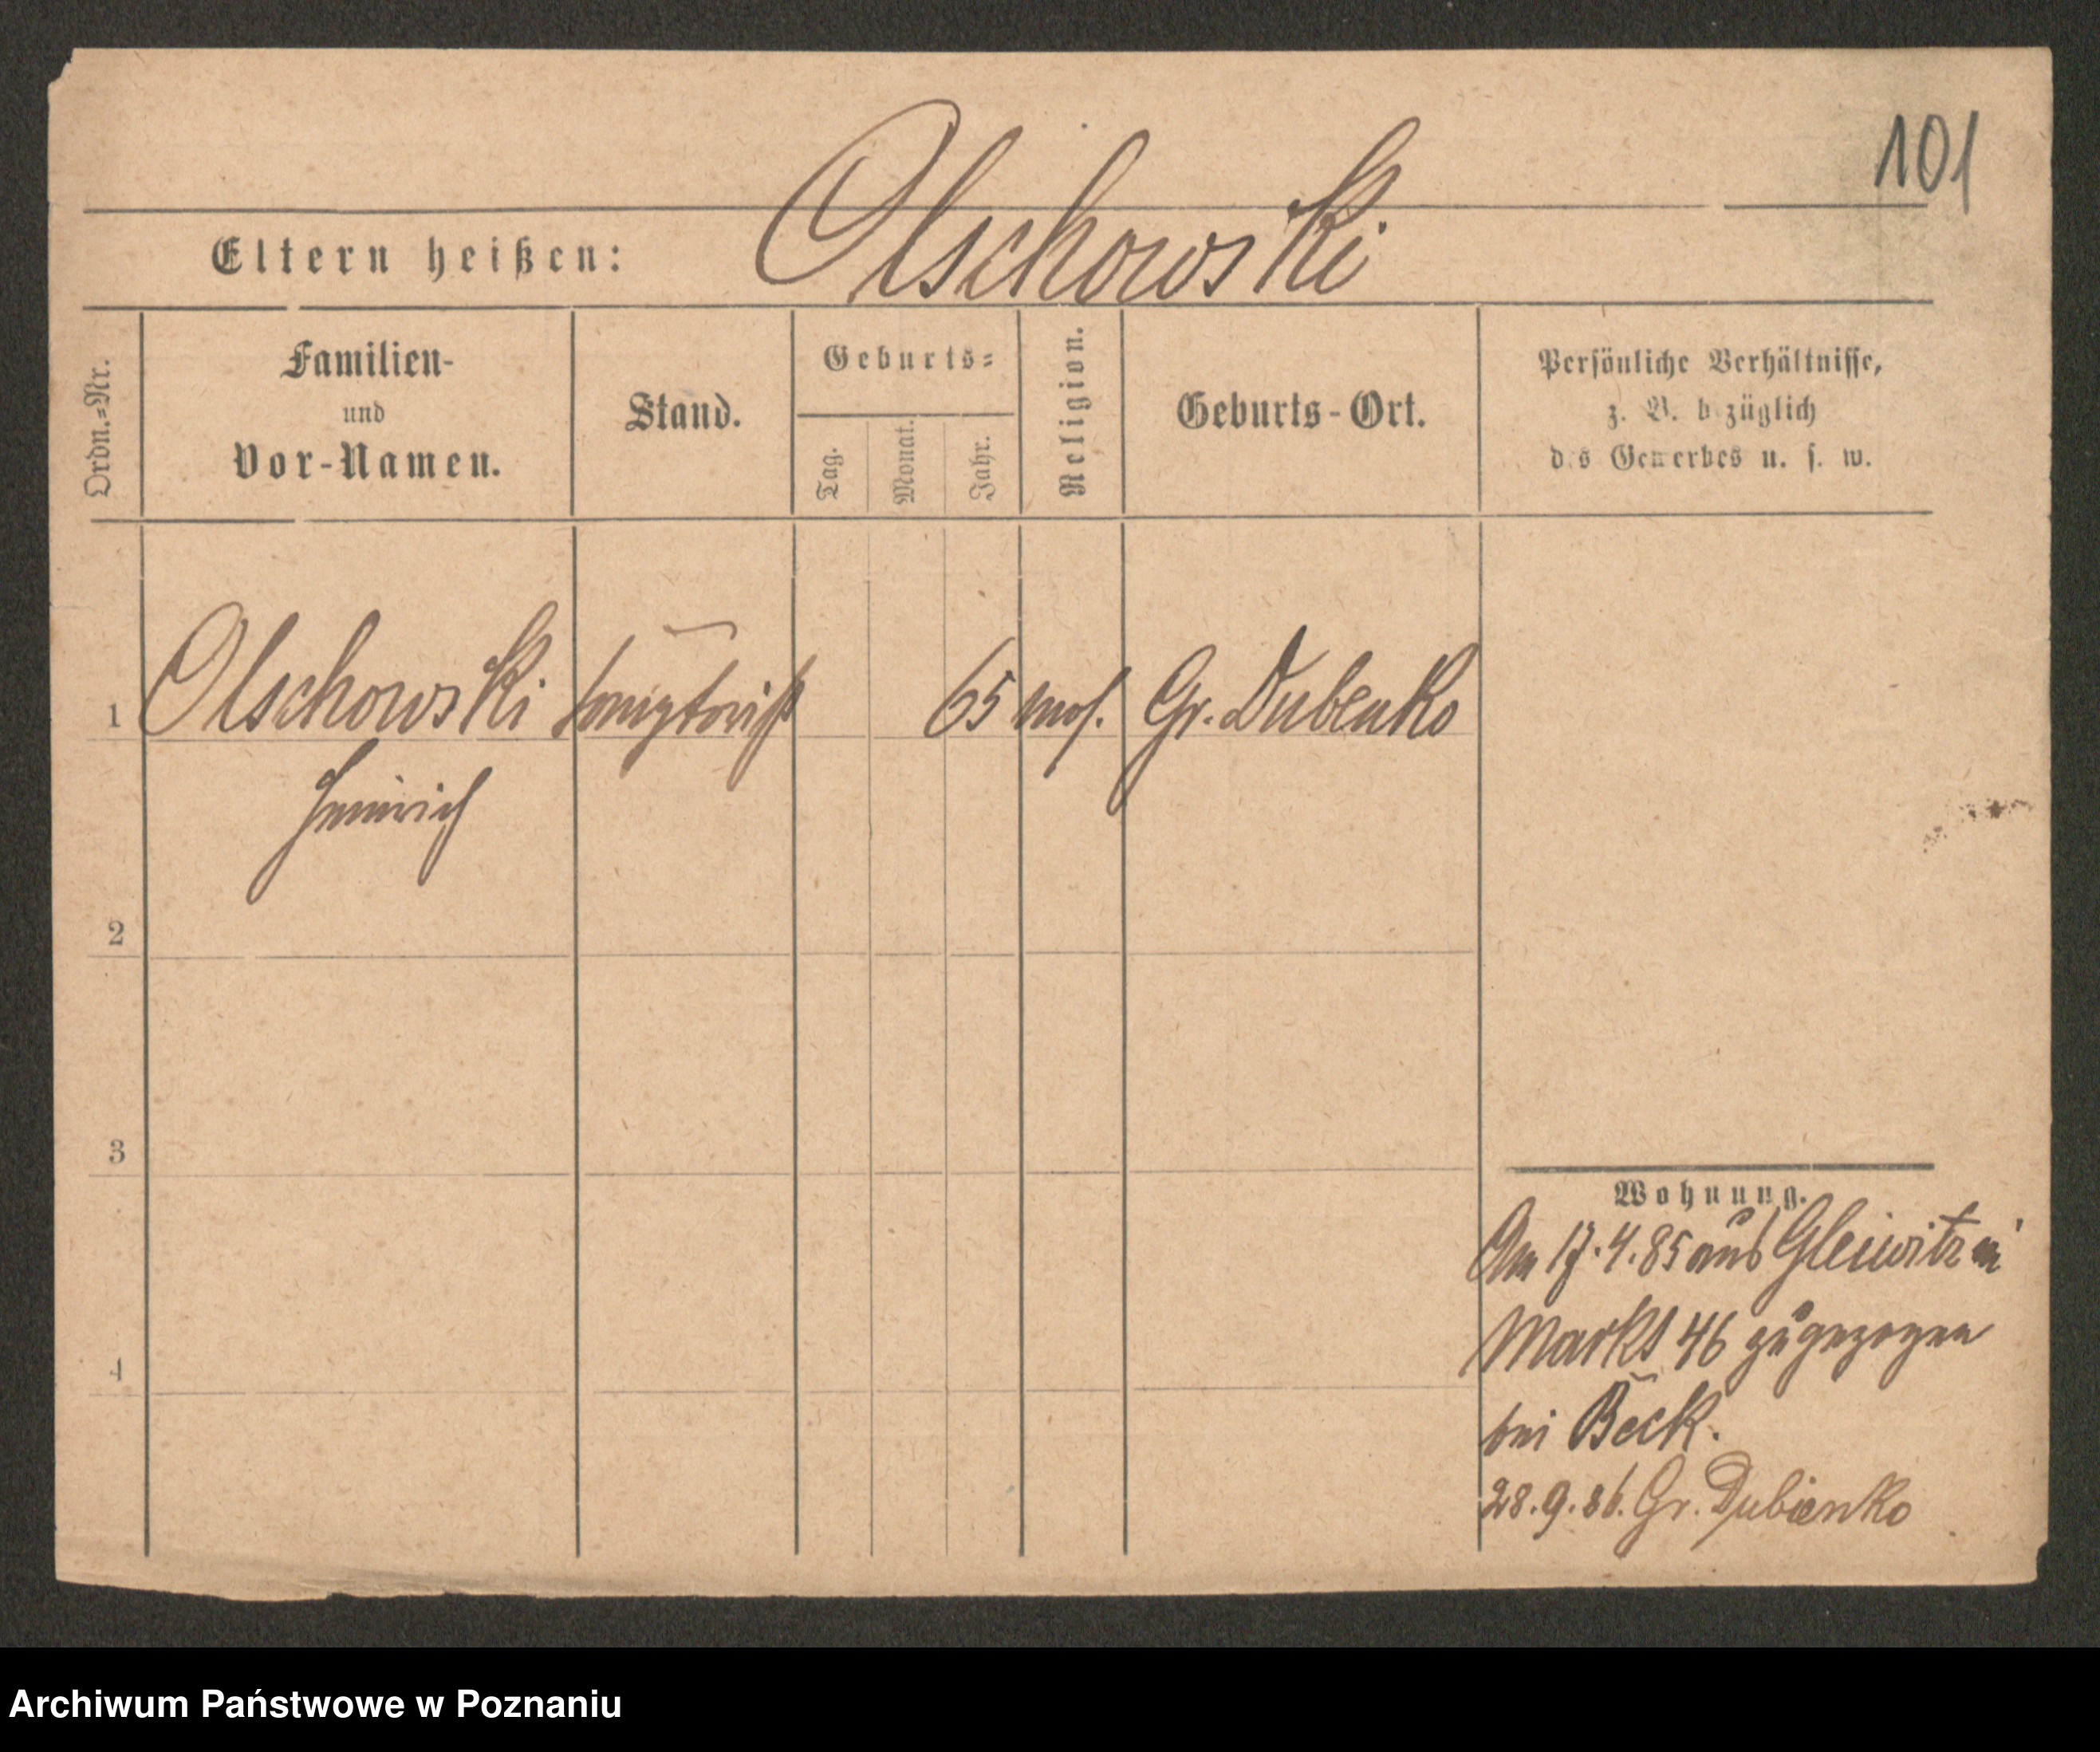 101
Olschowski
Eltern heißen:
Ordn.=Nr.
Familien-
und
Vor-Namen.
Stand.
Geburts=
Tag.
Monat.
Jahr.
Religion.
Geburts-Ort.
Persönliche Verhältnisse,
z. B. bezüglich
des Gewerbes u. s. w.
1 Olschowski 65 mos. Gr. Dubenko
Heinrich
2
3
4
Wohnung.
Am 17.4.85 aus Gleiwitz
Markt 46 zugezogen
bei Beck.
28.9.86. Gr. Dubienko
Archiwum Państwowe w Poznaniu